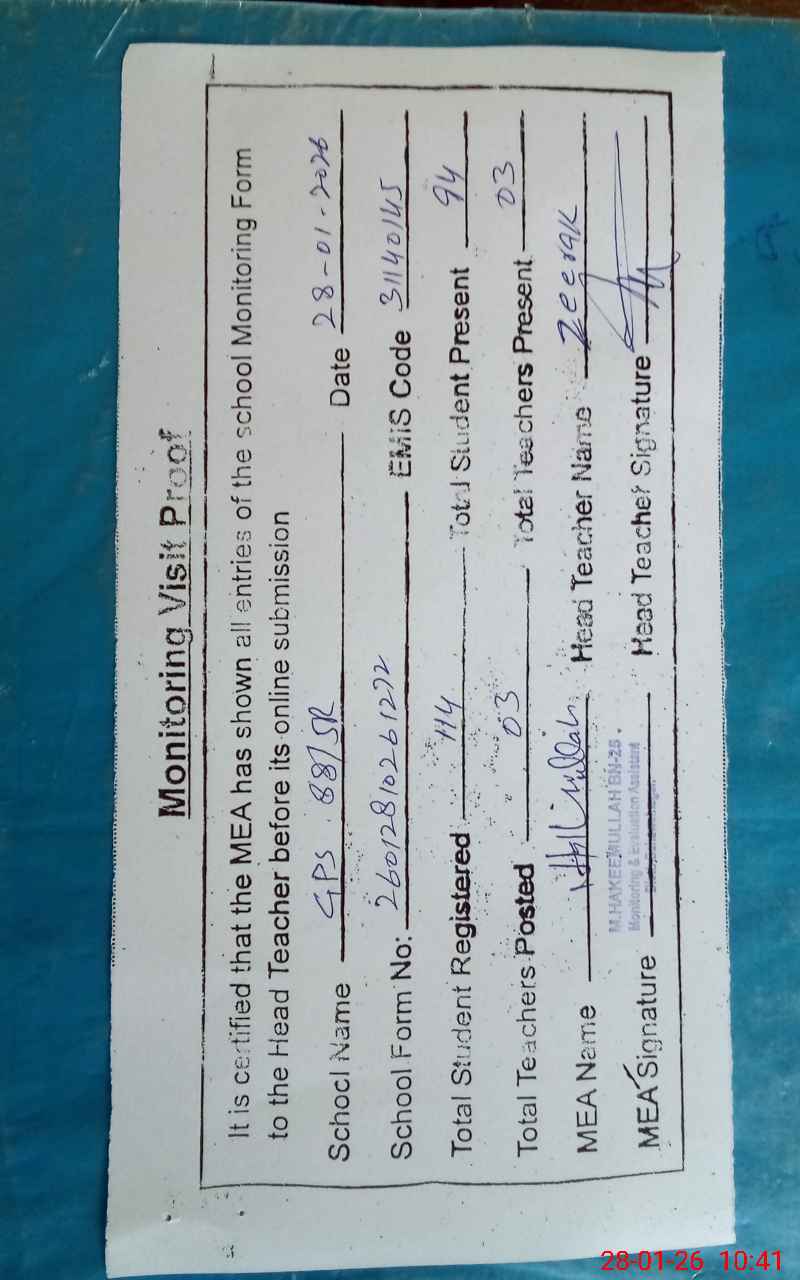 Monitoring Visit Proof
It is certified that the MEA has shown all entries of the school Monitoring Form
to the Head Teacher before its online submission
School Name GPS 88/5R Date 28-01-2026
School Form No: 26012810261272 EMIS Code 31140145
Total Student Registered 114 Total Student Present 94
Total Teachers Posted 03 Total Teachers Present 03
MEA Name Head Teacher Name Zeerak
M.HAKEEMULLAH BN-25
Monitoring & Evaluation Assistant
MEA Signature Head Teacher Signature
28-01-26 10:41